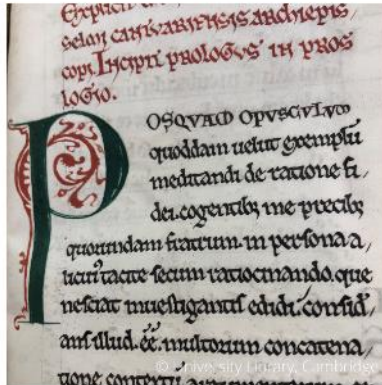 Explicit de
selmi cantuariensis archiepis,
copi. Incipit prologus in pros
logio.
POSQVAM OPVSCVLVM
quoddam uelut exemplū
meditandi de ratione fi,
dei. cogentibꝫ me precibꝫ
quorundam fratrum. in persona a,
licuiꝰ tacite secum ratiocinando. que
nesciat inuestigantis edidi: consid̛
ans illud. eē. multorum concatena,
tione contextū
© University Library, Cambridge